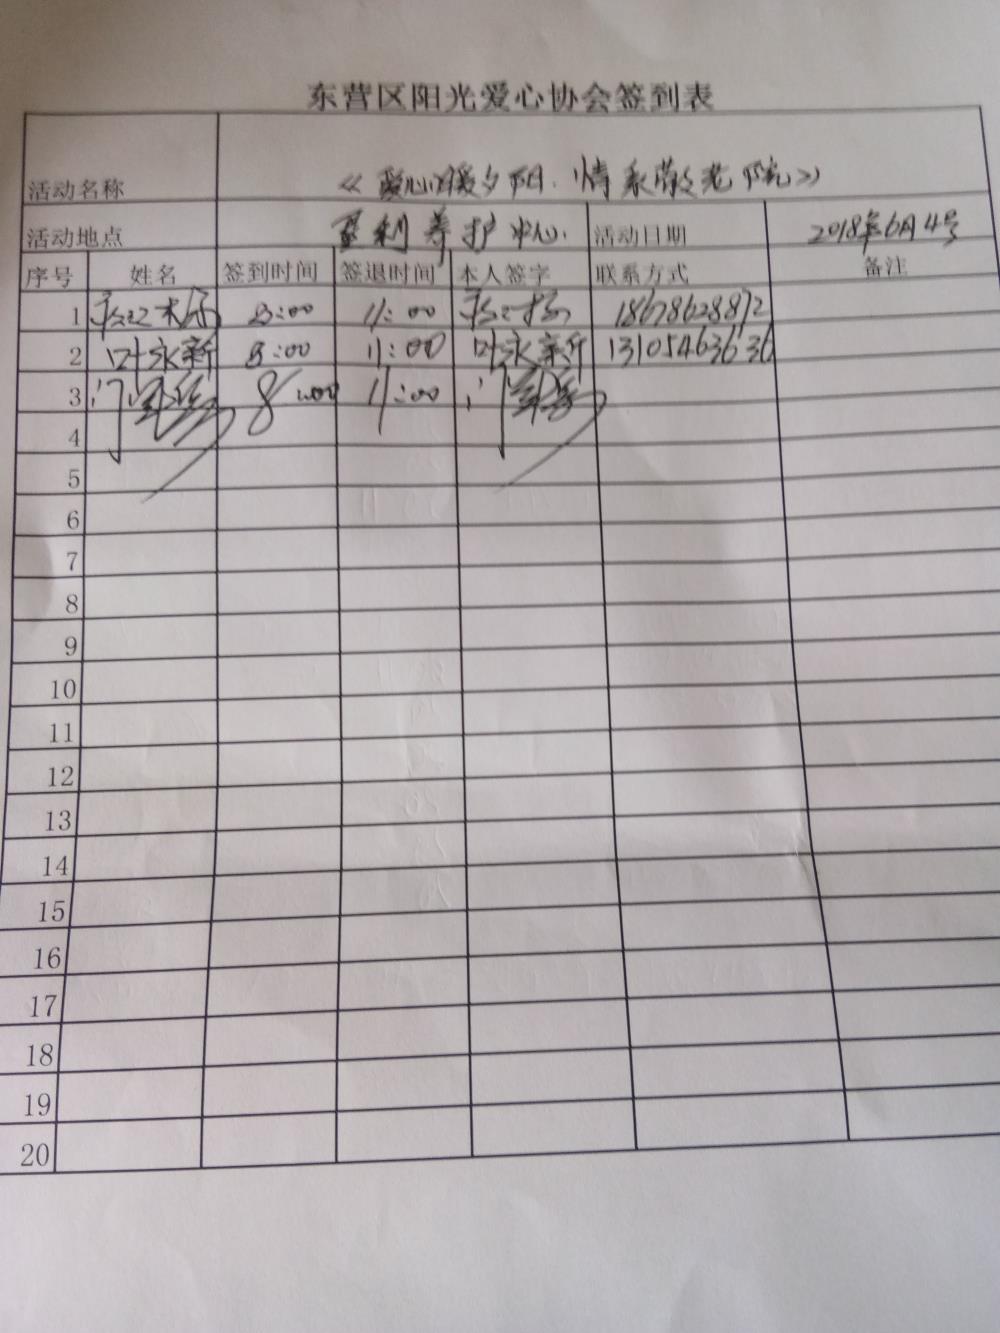 东营区阳光爱心协会签到表
活动名称 《爱心暖夕阳.情系敬老院》
活动地点 养护中心. 活动日期 2018年6月4号
序号 姓名 签到时间 签退时间 本人签字 联系方式 备注
1 8:00 11:00 18678628872
2 叶永新 8:00 11:00 叶永新 13105463636
3 8:00 11:00
4
5
6
7
8
9
10
11
12
13
14
15
16
17
18
19
20